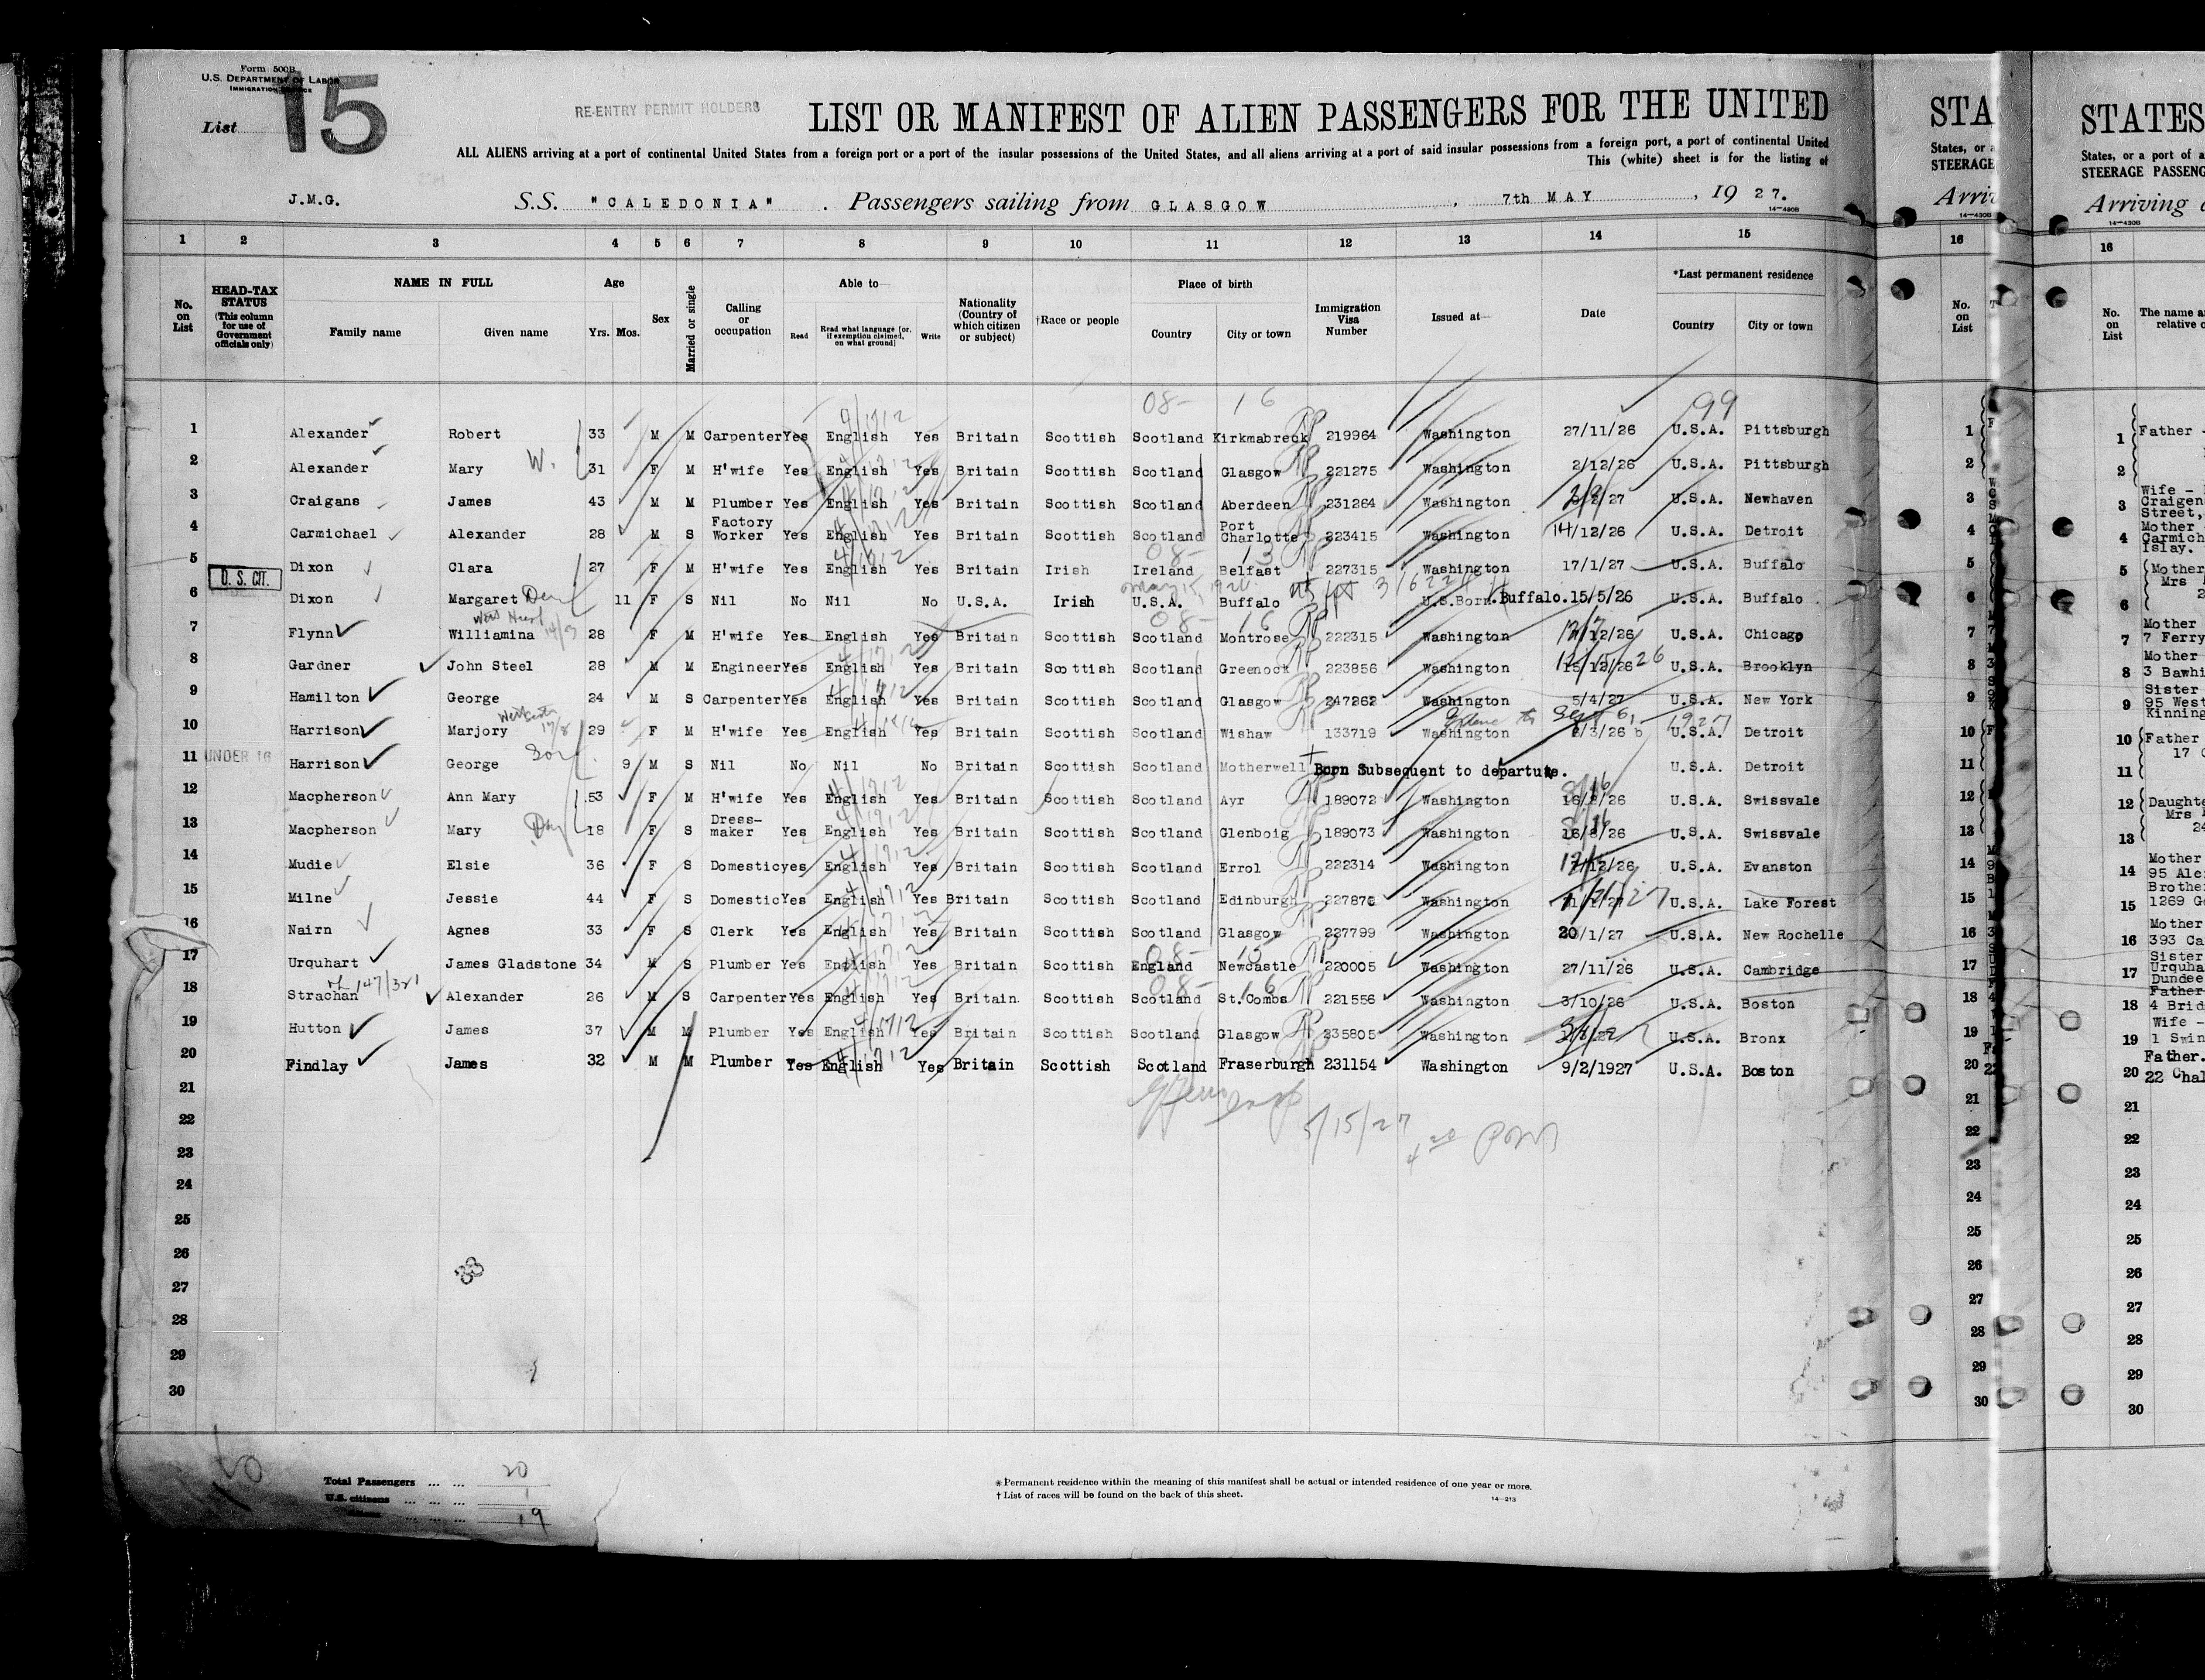 Form 500B
U.S. DEPARTMENT OF LABOR
IMMIGRATION SERVICE
List 15
RE-ENTRY PERMIT HOLDERS
LIST OR MANIFEST OF ALIEN PASSENGERS FOR THE UNITED
ALL ALIENS arriving at a port of continental United States from a foreign port or a port of the insular possessions of the United States, and all aliens arriving at a port of said insular possessions from a foreign port, a port of continental United
This (white) sheet is for the listing of
J.M.G. S.S. "CALEDONIA" . Passengers sailing from GLASGOW , 7th MAY , 19 27.
14-430B
1 2 3 4 5 6 7 8 9 10 11 12 13 14 15
No. on List
HEAD-TAX STATUS (This column for use of Government officials only)
NAME IN FULL
Family name Given name
Age
Yrs. Mos.
Sex
Married or single
Calling or occupation
Able to—
Read Read what language (or, if exemption claimed, on what ground) Write
Nationality (Country of which citizen or subject)
†Race or people
Place of birth
Country City or town
Immigration Visa Number
Issued at—
Date
*Last permanent residence
Country City or town
08- 16 99
1 Alexander Robert 33 M M Carpenter Yes English Yes Britain Scottish Scotland Kirkmabreck 219964 Washington 27/11/26 U.S.A. Pittsburgh
2 Alexander Mary W. 31 F M H'wife Yes English Yes Britain Scottish Scotland Glasgow 221275 Washington 2/12/26 U.S.A. Pittsburgh
3 Craigans James 43 M M Plumber Yes English Yes Britain Scottish Scotland Aberdeen 231264 Washington /27 U.S.A. Newhaven
4 Carmichael Alexander 28 M S Factory Worker Yes English Yes Britain Scottish Scotland Port Charlotte 223415 Washington 14/12/26 U.S.A. Detroit
08- 13
5 Dixon Clara 27 F M H'wife Yes English Yes Britain Irish Ireland Belfast 227315 Washington 17/1/27 U.S.A. Buffalo
U. S. CIT.
6 Dixon Margaret 11 F S Nil No Nil No U.S.A. Irish U.S.A. Buffalo U.S.Born. Buffalo.15/5/26 U.S.A. Buffalo
08- 16
7 Flynn Williamina 28 F M H'wife Yes English Yes Britain Scottish Scotland Montrose 222315 Washington /12/26 U.S.A. Chicago
8 Gardner John Steel 28 M M Engineer Yes English Yes Britain Scottish Scotland Greenock 223856 Washington 15/12/26 U.S.A. Brooklyn
9 Hamilton George 24 M S Carpenter Yes English Yes Britain Scottish Scotland Glasgow 247262 Washington 5/4/27 U.S.A. New York
10 Harrison Marjory 29 F M H'wife Yes English Yes Britain Scottish Scotland Wishaw 133719 Washington /3/26 U.S.A. Detroit
11 UNDER 16 Harrison George Son 9 M S Nil No Nil No Britain Scottish Scotland Motherwell Born Subsequent to departute. U.S.A. Detroit
12 Macpherson Ann Mary 53 F M H'wife Yes English Yes Britain Scottish Scotland Ayr 189072 Washington 16/8/26 U.S.A. Swissvale
13 Macpherson Mary 18 F S Dress- maker Yes English Yes Britain Scottish Scotland Glenboig 189073 Washington 16/8/26 U.S.A. Swissvale
14 Mudie Elsie 36 F S Domestic yes English Yes Britain Scottish Scotland Errol 222314 Washington /12/26 U.S.A. Evanston
15 Milne Jessie 44 F S Domestic Yes English Yes Britain Scottish Scotland Edinburgh Washington U.S.A. Lake Forest
16 Nairn Agnes 33 F S Clerk Yes English Yes Britain Scottish Scotland Glasgow 227799 Washington 20/1/27 U.S.A. New Rochelle
17 Urquhart James Gladstone 34 M S Plumber Yes English Yes Britain Scottish England Newcastle 220005 Washington 27/11/26 U.S.A. Cambridge
08- 16
18 Strachan Alexander 26 M S Carpenter Yes English Yes Britain Scottish Scotland St.Combs 221556 Washington 3/10/26 U.S.A. Boston
19 Hutton James 37 M M Plumber Yes English Yes Britain Scottish Scotland Glasgow 235805 Washington U.S.A. Bronx
20 Findlay James 32 M M Plumber Yes English Yes Britain Scottish Scotland Fraserburgh 231154 Washington 9/2/1927 U.S.A. Boston
5/15/27
21
22
23
24
25
26
27
28
29
30
Total Passengers ... ... 20
U.S. citizens ... ... ... 1
19
*Permanent residence within the meaning of this manifest shall be actual or intended residence of one year or more.
†List of races will be found on the back of this sheet.
14-213
STA
States, or a
STEERAGE
Arriv
14-430B
16
No. on List
1
2
3
4
5
6
7
8
9
10
11
12
13
14
15
16
17
18
19
20
21
22
23
24
25
26
27
28
29
30
STATES
States, or a port of a
STEERAGE PASSENG
Arriving
14-430B
16
No. on List
The name a
relative o
1 Father
2
3 Wife - Craigen Street,
4 Mother Carmich Islay.
5 Mother Mrs
6
7 Mother 7 Ferry
8 Mother 3 Bawhi
9 Sister 95 West Kinning
10 Father 17
11
12 Daughte Mrs
13 24
14 Mother 95 Ale
15 Brothe 1269 G
16 Mother 393 Ca
17 Sister Urquha Dundee
18 Father 4 Brid
19 Wife - 1 Swin
20 Father. 22 Chal
21
22
23
24
25
26
27
28
29
30